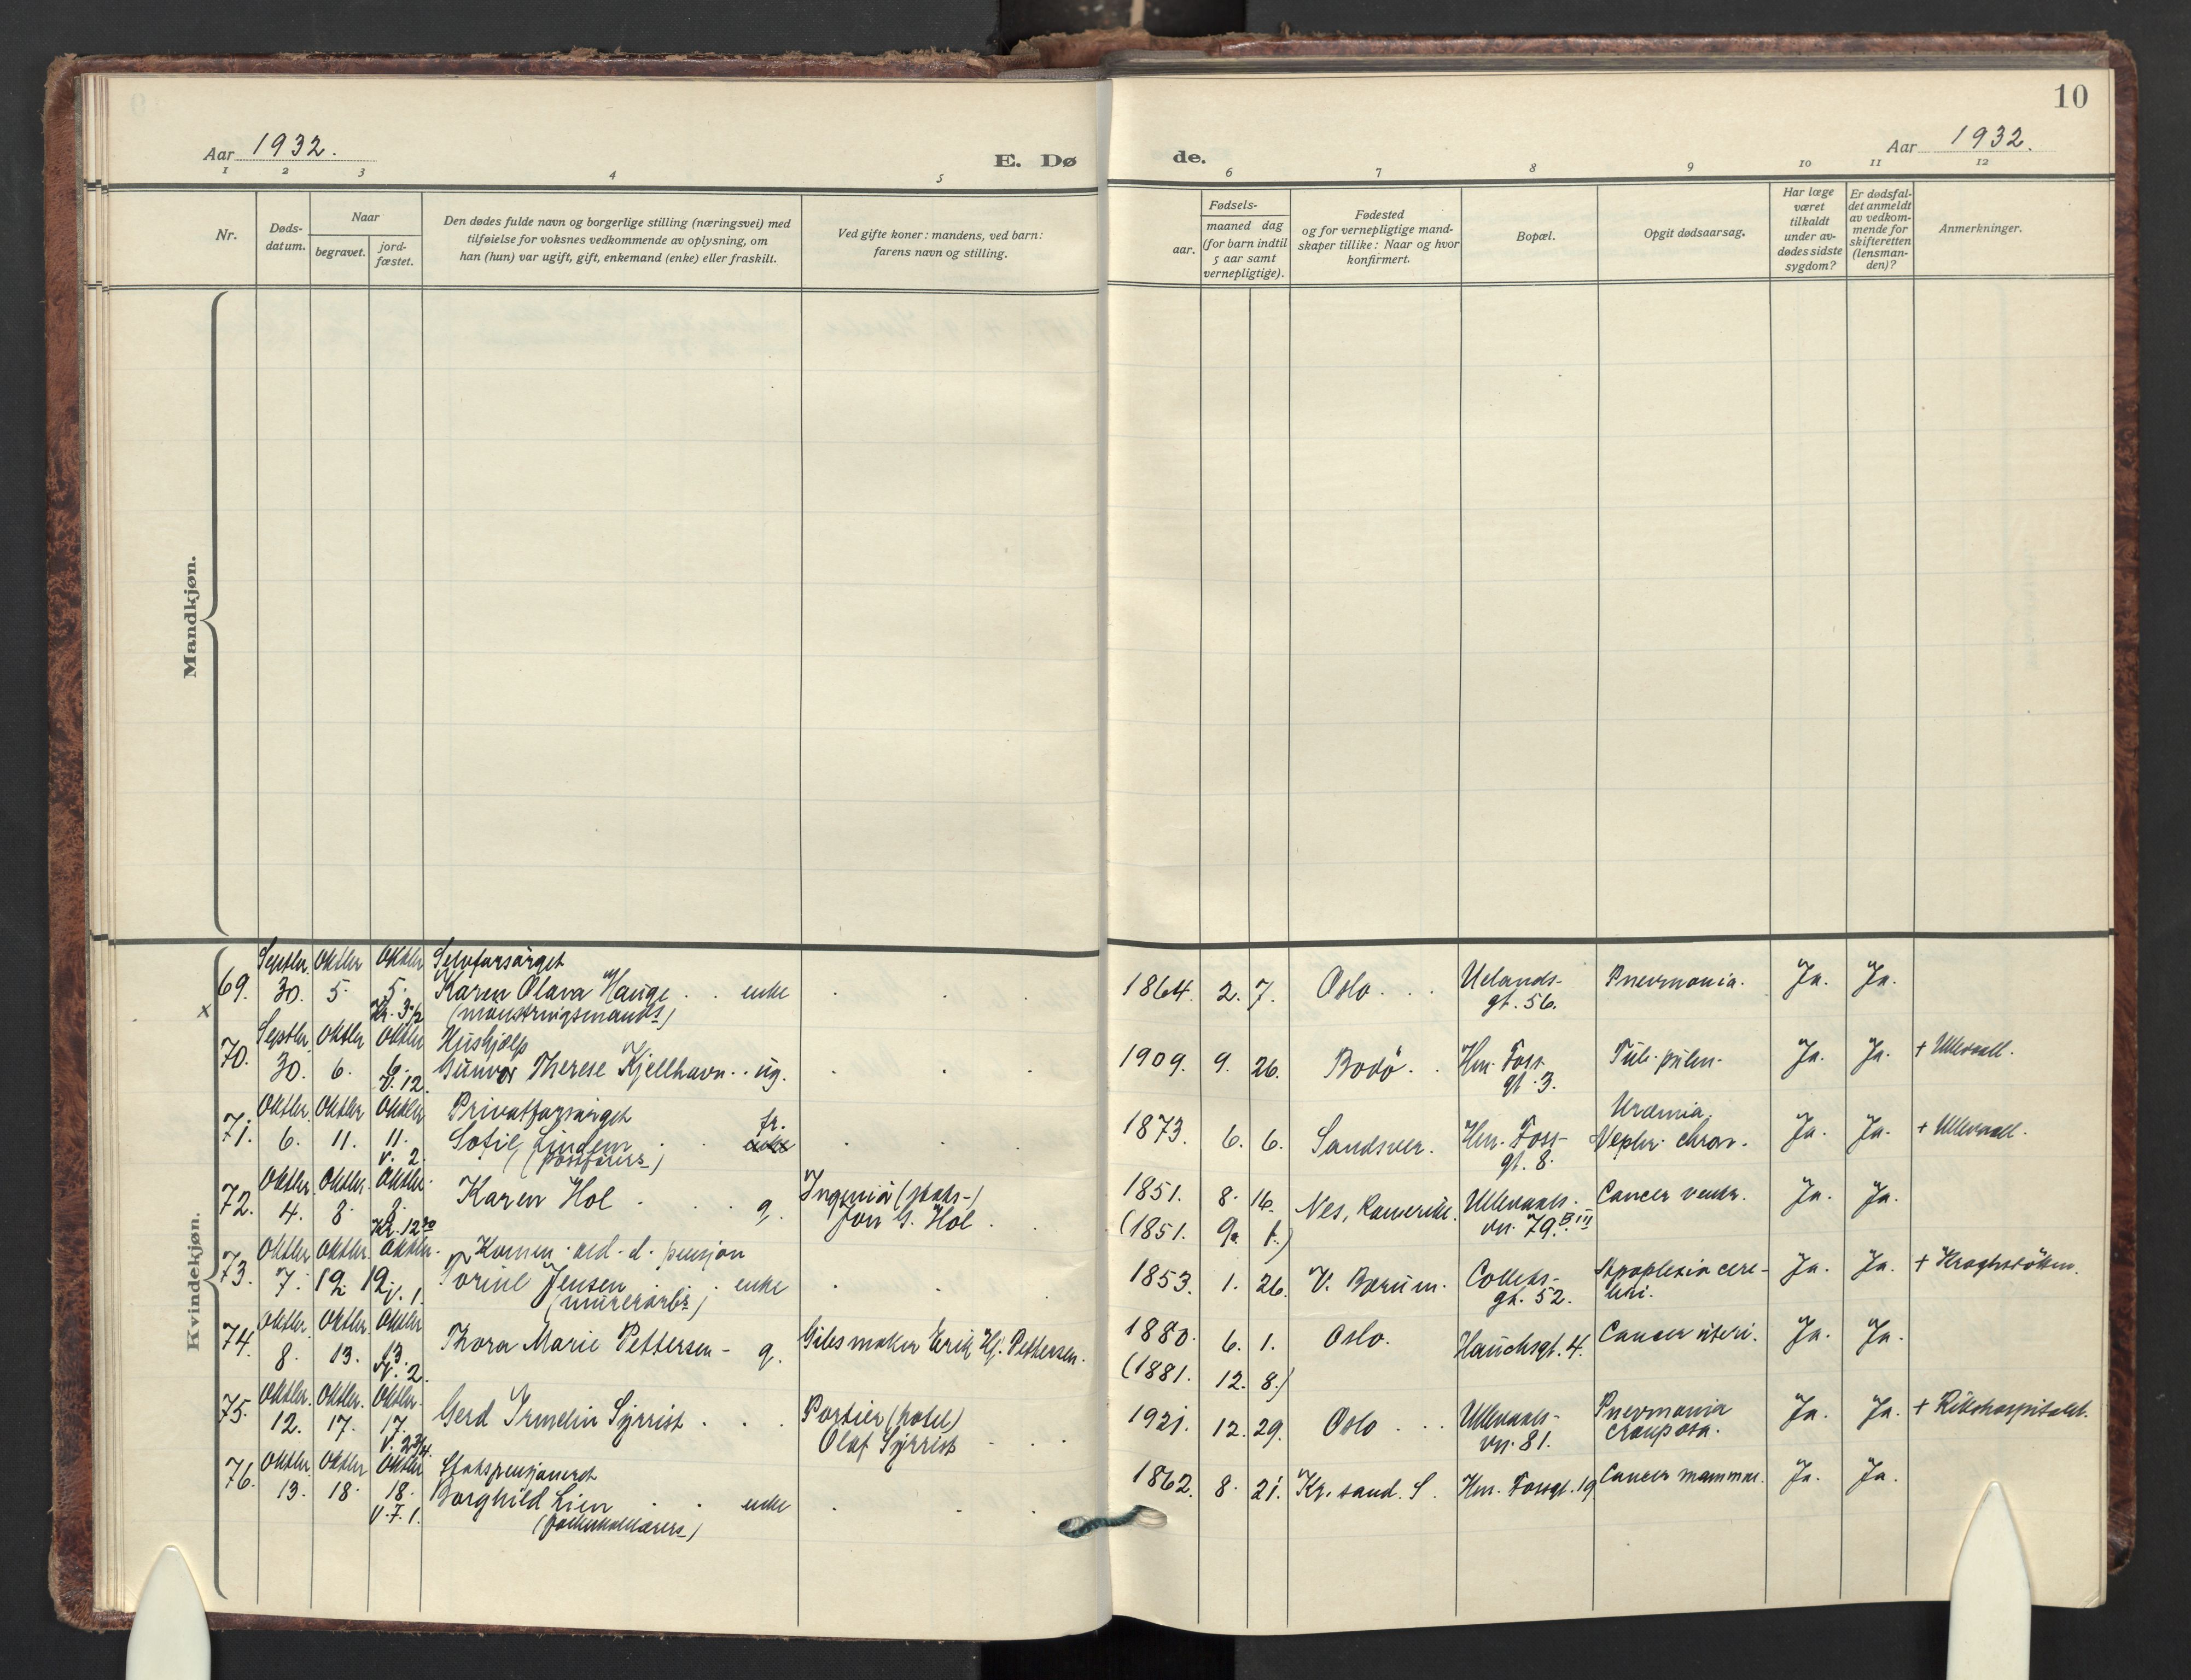 10
Aar 1932.
E. Dø
de.
Aar 1932.
1 2 3 4 5
6 7 8 9 10 11 12
Nr.
Døds-
datum.
Naar
begravet.
jord-
fæstet.
Den dødes fulde navn og borgerlige stilling (næringsvei) med
tilføielse for voksnes vedkommende av oplysning, om
han (hun) var ugift, gift, enkemand (enke) eller fraskilt.
Ved gifte koner: mandens, ved barn:
farens navn og stilling.
Fødsels-
aar.
maaned dag
(for barn indtil
5 aar samt
vernepligtige).
Fødested
og for vernepligtige mand-
skaper tillike: Naar og hvor
konfirmert.
Bopæl.
Opgit dødsaarsag.
Har læge
været
tilkaldt
under av-
dødes sidste
sygdom?
Er dødsfal-
det anmeldt
av vedkom-
mende for
skifteretten
(lensman-
den)?
Anmerkninger.
Mandkjøn.
Kvindekjøn.
Septbr. Oktbr. Oktbr. Selvforsörget
69. 30. 5. 5. Karen Olava Hauge . . enke 1864. 2. 7. Oslo . . Uelands- Pneumonia. Ja. Ja.
x Kr. 3½ (mønstringsmands) gt. 56.
Septbr. Oktbr. Oktbr. Hushjælp
70. 30. 6. 6. Gunvor Therese Kjellhavn . . ug. 1909. 9. 26. Bodö . . Hm. Foss- Tub. pulm. Ja. Ja. + Ullevaal.
V. 12. gt. 3.
Oktbr. Oktbr. Oktbr. Privatforsörget fr. Uræmia.
71. 6. 11. 11. Sofie Lindem . . enke 1873. 6. 6. Sandsver. Hm. Foss- Nephr. chron. Ja. Ja. + Ullevaal.
V. 2. gt. 8.
Oktbr. Oktbr. Oktbr.
72. 4. 8. 8. Karen Hol . . g. Ingeniör (stats-) 1851. 8. 16. Nes, Romerike. Ullevaals- Cancer ventr. Ja. Ja.
Kr. 12 Jon G. Hol . . (1851. 9. 1.) vn. 79. B III
Oktbr. Oktbr. Oktbr. Komm. ald. d. pensjon
73. 7. 12. 12. Torine Jensen . . enke 1853. 1. 26. V. Bærum. Colletts- Apoplexia cere- Ja. Ja. +
V. 1. (murerarb.s) gt. 52. bri.
Oktbr. Oktbr. Oktbr.
74. 8. 13. 13. Thora Marie Pettersen - g. Erik Hj. Pettersen. 1880. 6. 1. Oslo. Hauchsgt. 4. Cancer uteri. Ja. Ja.
V. 2. (1881. 12. 8.)
Oktbr. Oktbr. Oktbr.
75. 12. 17. 17. Gerd Irmelin Syrrist . . . Portier (hotel) 1921. 12. 29. Oslo . . . Ullevaals- Pneumonia Ja. Ja. + Rikshospitalet.
V. 2¾. Olaf Syrrist . . . vn. 81. crouposa.
Oktbr. Oktbr. Oktbr. Statspensjonert
76. 13. 18. 18. Borghild Lien . . enke 1862. 8. 21. Kr.sand. S. Hm. Fossgt. 19. Cancer mammae. Ja. Ja.
V. F. 1. (folkeskolelærers)